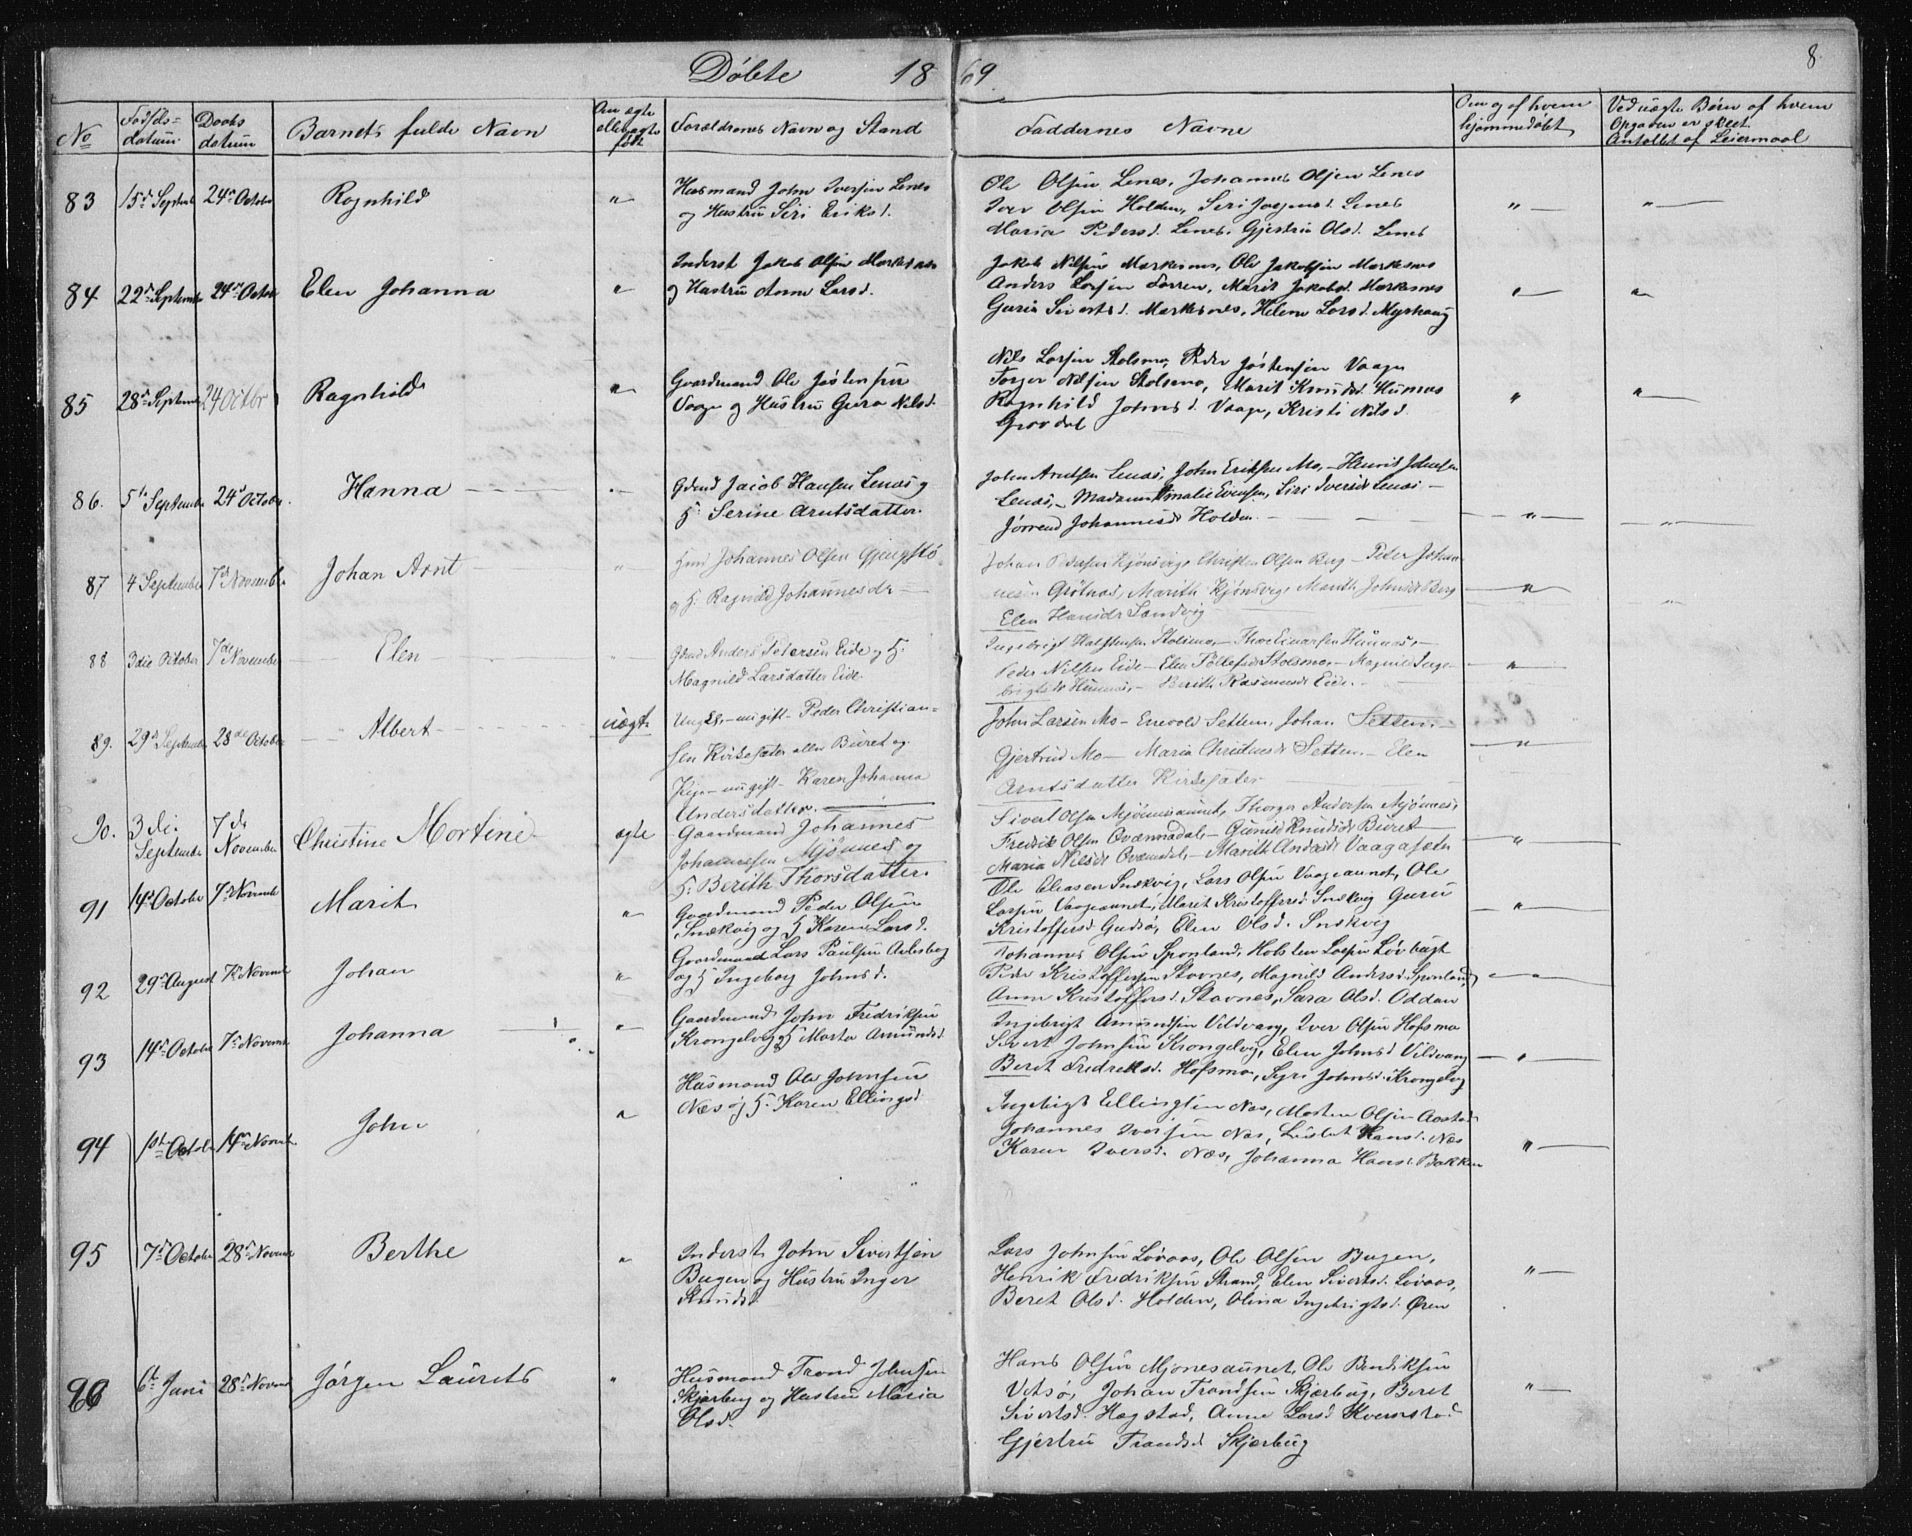 Døbte 1869. 8.
No
Fødsels-
datum
Daabs
datum
Barnets fulde Navn
Om ægte
eller uægte
født
Forældrenes Navn og Stand
Faddernes Navne
Om og af hvem
hjemmedøbt
Ved uægte Børn af hvem
Opgaven er skeet.
Antallet af Leiermaal
83 15de Septemb 24de Octobr Ragnhild " Husmand John Iversen Lenes
og Hustru Siri Eriksd.
Ole Olsen Lenes, Johannes Olsen Lenes
Iver Olsen Holden, Siri Joensd. Lenes
Maria Pedersd. Lenes, Gjertru Olsd. Lenes
84 22de Septemb 24de Octobr Elen Johanna " Inderst Jakob Olsen Merkesnes
og Hustru Anne Larsd.
Jakob Nilsen Merkesnes, Ole Jakobsen Merkesnes
Anders Larsen Forren, Marit Jakobsd. Merkesnes
Guria Sivertsd. Merkesnes, Helene Larsd. Myrhaug
85 28de Septemb 24 Octbr Ragnhild " Gaardmand Ole Jostensen
Vaage og Hustru Guro Nilsd.
Nils Larsen Stolsmo, Peder Jostensen Vaage
Torger Nilsen Stolsmo, Marit Knudsd. Humnes
Ragnhild Johnsd. Vaage, Kristi Nilsd.
Grovdal
86. 5te September 24de October. Hanna Gdmd Jacob Hansen Lenæs og
H. Serine Arntsdatter.
John Arntsen Lenæs, John Eriksen Mo,
Lenæs, Madame Amalie Evensen, Siri Iversdr Lenæs
Johannesdr Holden
87 4 September 7de November Johan Arnt " Johannes Olsen
og H. Ragnild Johannesdr
Johan Pedersen Kjønsvig, Christen Olsen Berg Peder Johan
Marith Kjønsvig, Marith Johnsdr Berg
Elen Hansdr Sandvig
88 3die October 7de November Elen " Gmd Anders Petersen Eide og H.
Magnild Larsdatter Eide.
Peder Nilsen Eide Elen Stolsmo, Magnild Inge
brigtsdr Humnes, Berith Rasmusdr Eide.
89. 29de September 28de October Albert uægte Ungk. ugift Peder Christian-
sen Kirksæter eller Buret og
Pige ugift Karen Johanna
Andersdatter.
John Larsen Mo Enevold Settem, Johan Settem,
Gjertrud Mo Maria Settem Elen
Arntsdatter Kirksæter
90. 3die
September 7de
November Christine Mortine ægte Gaardmand Johannes
Johannesen Mjønnes og
H. Berith Thorsdatter.
Sivert Olsen Mjønnesaunet, Thorger Andersen Mjønnes,
Fredrik Olsen Gunild Knudsdr Buret
Maria Nilsdr Marith Andersdr Vaagasæter
91 14de October 7de Novemb Marit " Gaardmand Peder Olsen
Snekvig og H Karen Larsd.
Ole Eliasen Snekvig, Lars Olsen Vaageaunet, Ole
Larsen Vaageaunet, Marit Kristoffersd Snekvig Guru
Kristoffersd Gudsø, Elen Olsd. Snekvig
92 29de August 7de Novemb Johan " Gaardmand Lars Paulsen
og H Ingeborg Johnsd.
Johannes Olsen Sponland, Halsten Larsen Løvbugt
Peder Kristoffersen Stavnes, Magnild Andersd. Sponland
Anne Kristoffersd. Stavnes, Sara Olsd. Oddan
93 14de October 7de Novemb Johanna " Gaardmand John Fredriksen
Krongelvig og H Marta Amundsd
Ingebrigt Amundsen Vildvang, Iver Olsen Hofsmo
Sivert Johnsen Krongelvig, Elen Johnsd Vildvang
Beret Fredriksd. Hofsmo, Syri Johnsd. Krongelvig
94 1ste Octobr 14de Novemb John " Husmand Ole Johnsen
Næs og H. Karen Ellingsd
Ingebrigt Ellingsen Næs, Morten Olsen
Johannes Iversen Næs, Lisbet Hansd. Næs
Karen Iversd. Næs, Johanna Hansd. Bakken
95 7de October 28de Novemb Berthe " Inderst John Sivertsen
Bugen og Hustru Inger
Knudsd.
Lars Johnsen Løvaas, Ole Olsen Bugen,
Henrik Fredriksen Strand, Elen Sivertsd. Løvaas,
Beret Olsd. Holden, Olina Ingebrigtsd. Øren
96 6te Juni 28de Novemb Jørgen Laurits " Husmand Trond Johnsen
Skjærbug og Hustru Maria
Olsd.
Hans Olsen Mjønesaunet, Ole Bendiksen
Vitsø, Johan Trondsen Skjærbug, Beret
Sivertsd. Hagstad, Anne Larsd Kvernstad
Gjertru Trondsd Skjærbug